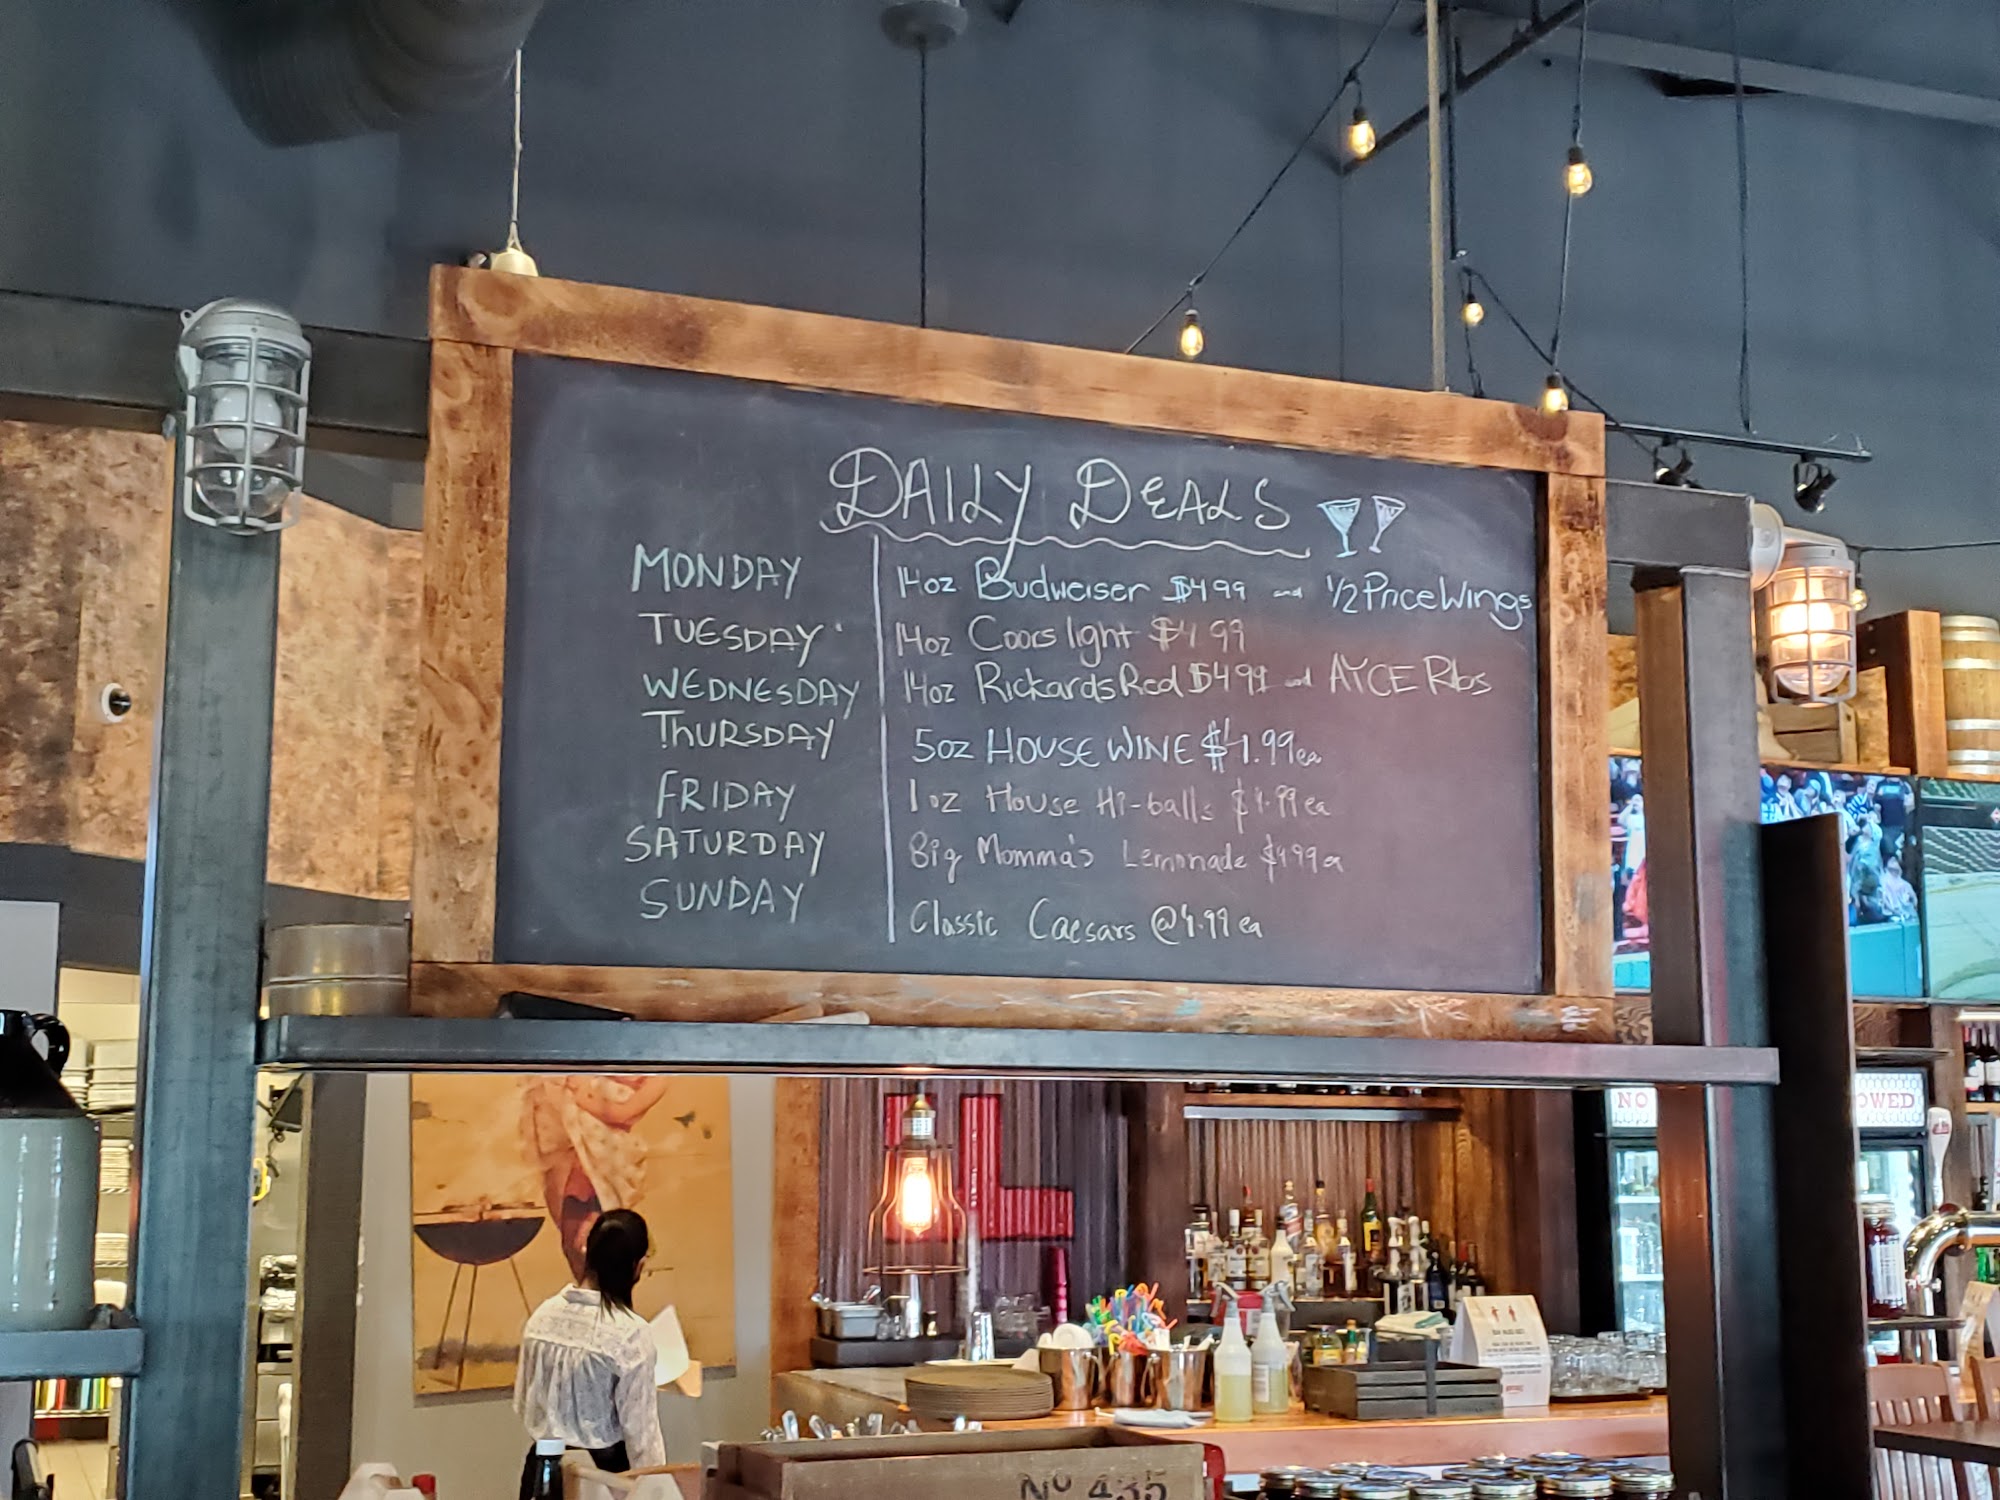 DAILY DEALS
MONDAY 14oz Budweiser $4.99 and 1/2 Price Wings
TUESDAY 14oz Coors light $4.99
WEDNESDAY 14oz Rickards Red $4.99 and AYCE Ribs
THURSDAY 5oz HOUSE WINE $4.99ea
FRIDAY 1oz House Hi-balls $4.99 ea
SATURDAY Big Momma's Lemonade $4.99 ea
SUNDAY Classic Caesars @4.99 ea
NO
OWED
No 435